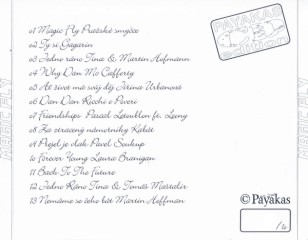 01 Magic Fly Pražské smyčce
02 Ty si Gagarin
03 Jedno ráno Tina & Martin Hofmann
04 Why Dan Mc Cafferty
05 Ať život má svůj děj Jiřina Urbanová
06 Dan Dan Ricchi e Poveri
07 Friendships Pascal Letoublon ft. Leony
08 Za ztracený námořníky Kabát
09 Prejel je vlak Pavel Soukup
10 Forever Young Laura Branigan
11 Back To The Future
12 Jedno Ráno Tina & Tomas
13 Nemáme se čeho bát Martin Hoffman
PAYAKAS
MAGIC FLY
MAGIC FLY
Payakas